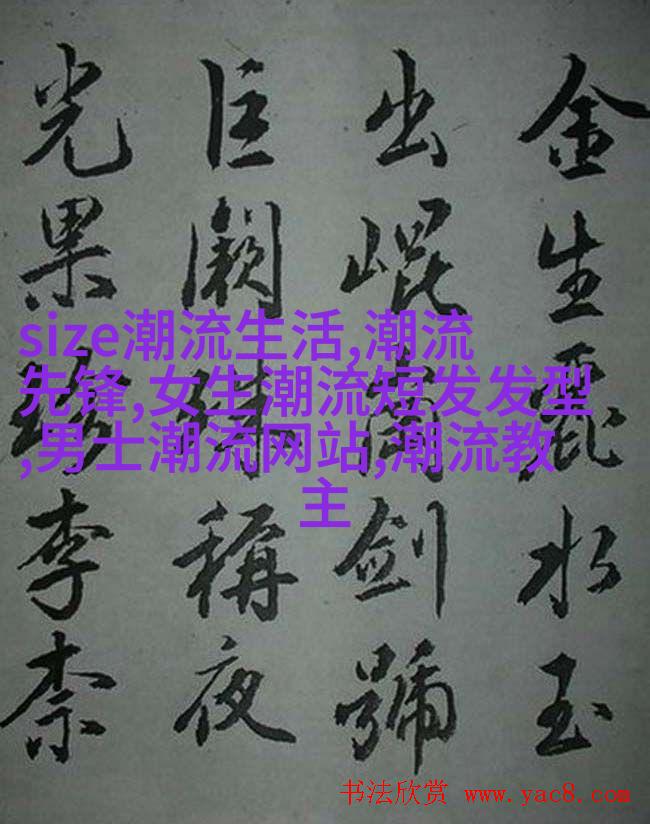 金生麗水玉
出崐岡劍號
巨闕珠稱夜
光果珍李柰
size潮流生活,潮流
先锋,女生潮流短发发型
,男士潮流网站,潮流教
主
书法欣赏 www.yac8.com